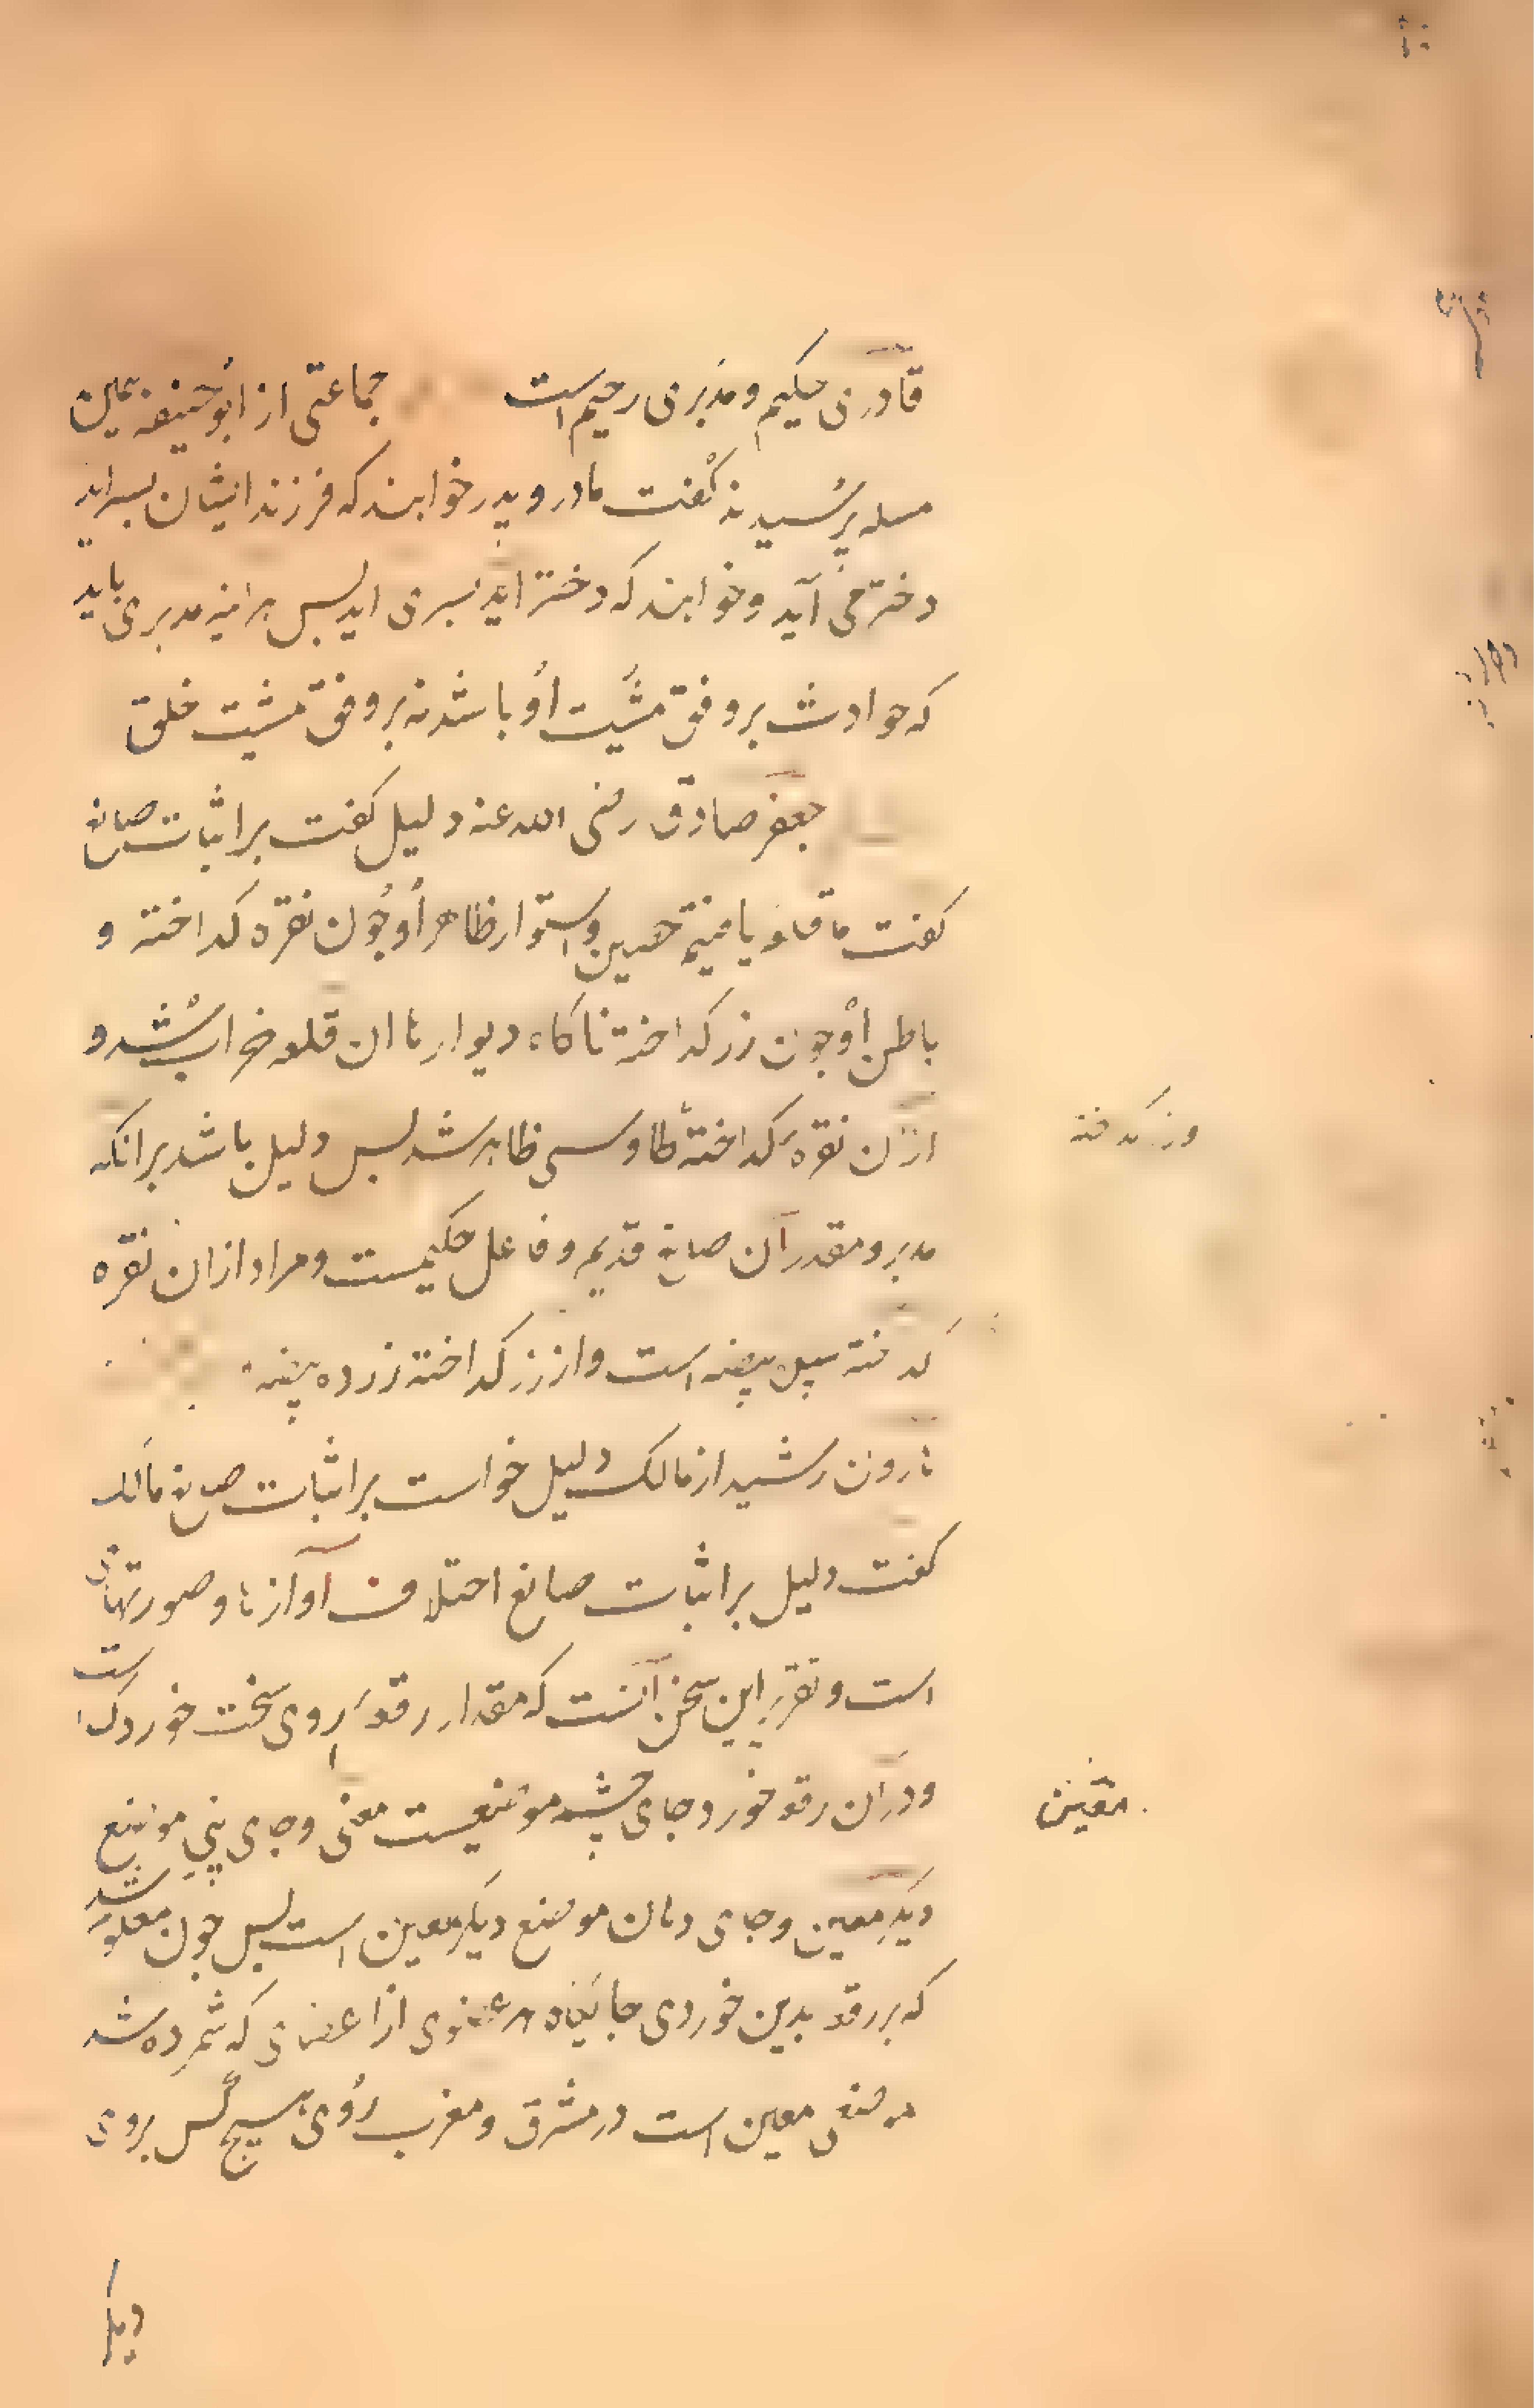 قادری حکیم و مدبری رحیم است جماعتی از ابوحنیفه همین
مسله پرسیدند گفت مادر و پدر خواهند که فرزند ایشان پسر اید
دختر می آید و خواهند که دختر اید پسر می اید پس هراینه مدبری باید
که حوادث بر وفق مشیت او باشد نه بر وفق مشیت خلق
جعفر صادق رضی الله عنه دلیل گفت بر اثبات صانع
گفت ما قلعه یافتیم حصین و استوار ظاهر او چون نقره کداخته و
باطن او چون زر کداخته ناکاه دیوارها ان قلعه خراب شد و
ازان نقره کداخته طاوسی ظاهر شد پس دلیل باشد برانکه
مدبر و مقدر آن صانع قدیم و فاعل حکیمست و مراد ازان نقره
کداخته بیضه است و از زر کداخته زرده بیضه
هارون رشید از مالک دلیل خواست بر اثبات صانع مالک
گفت دلیل بر اثبات صانع اختلاف آوازها و صورتهای
است و تقریر این سخن آنست که مقدار رقعه روی سخت خوردک است
و دران رقعه خورد جای چشم موضعیست معین و جای بینی موضع
دیگر معین و جای دهان موضع دیگر معین است پس چون معلوم شد
که بر رقعه بدین خوردی جایگاه هر عضوی از اعضای که شمرده شد
موضعی معین است در مشرق و مغرب روی هیچ کس بروی
معین
دیگر